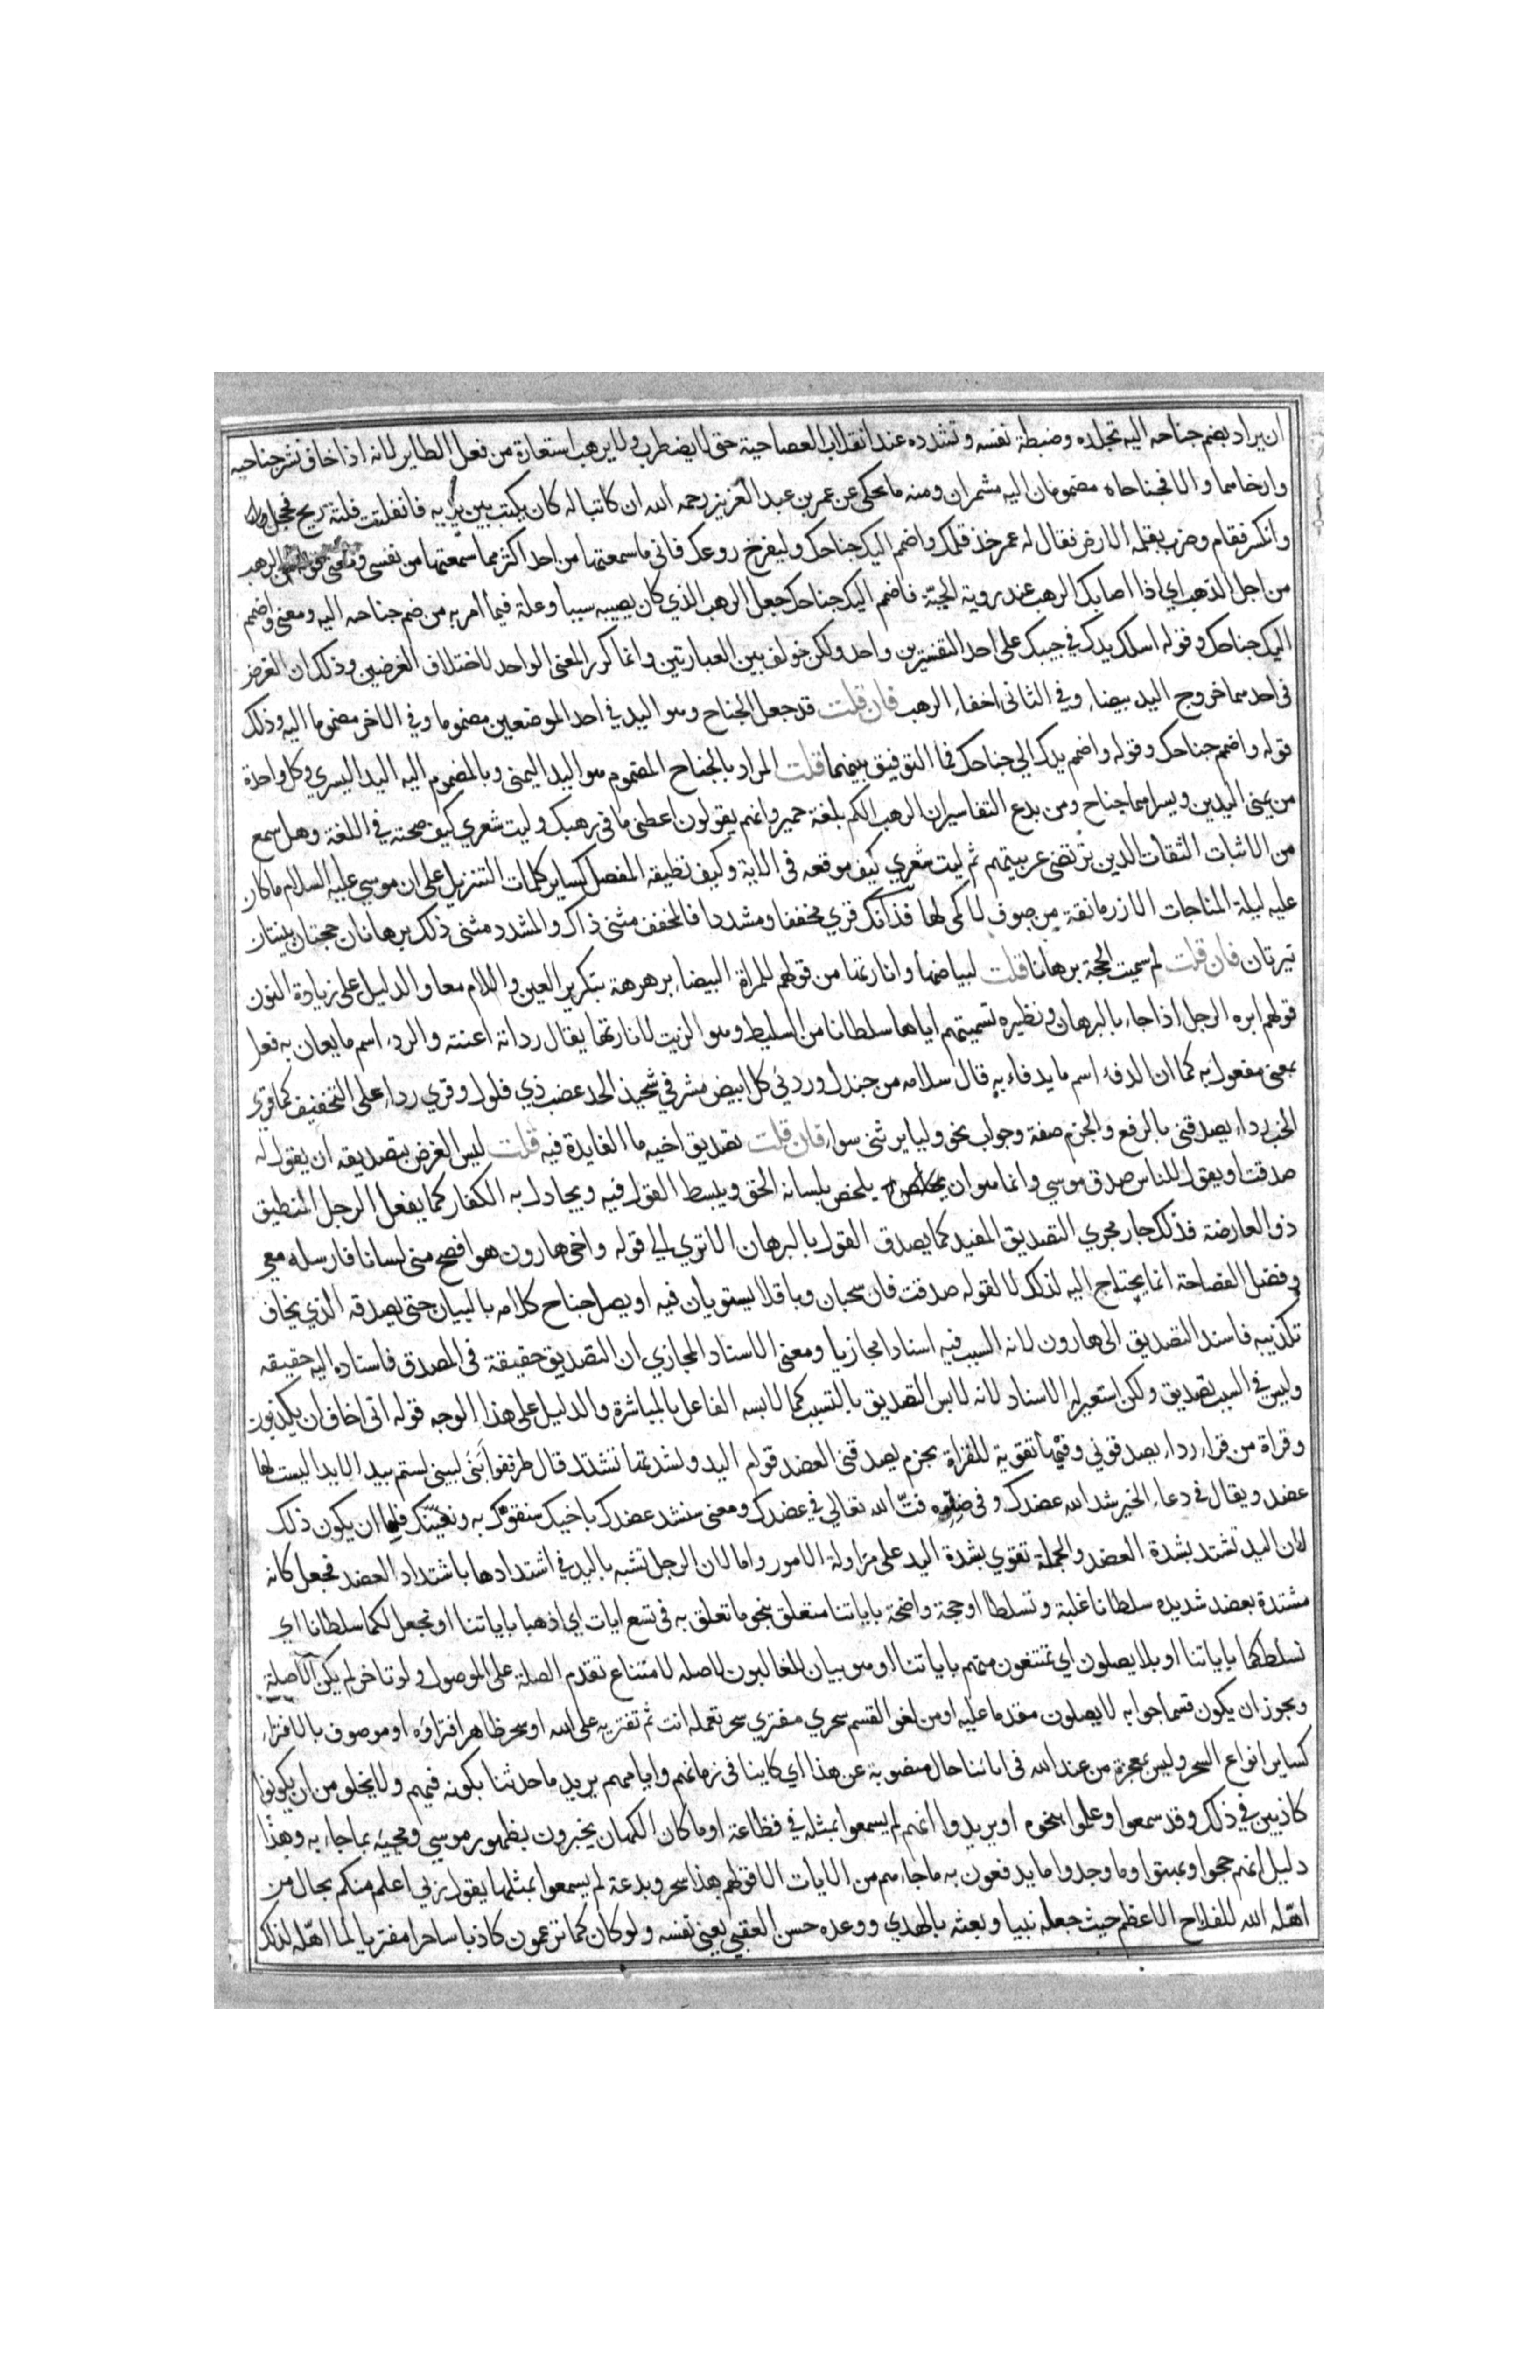 ان يراد بضم جناحه اليه تجلده وضبطة نفسه وتشدده عند انقلاب العصا حية حتى لا يضطرب ولا يرهب استعارة من فعل الطاير لانه اذا خاف نشر جناحيه
وارخاهما والا فجناحاه مضمومان اليه مشمران ومنه ما يحكى عن عمر بن عبد العزيز رحمه الله ان كاتبا له كان يكتب بين يديه فانفلتت فلتة ريح فخجل
وانكسر فقام وضرب بقلمه الارض فقال له عمر خذ قلمك واضمم اليك جناحك وليفرخ روعك فاني ما سمعتها من احد اكثر مما سمعتها من نفسى ومعنى قوله من الرهب
من اجل الذهب اي اذا اصابك الرهب عند روية الحية فاضمم اليك جناحك جعل الرهب الذي كان يصيبه سببا وعلة فيما امر به من ضم جناحه اليه ومعنى واضمم
اليك جناحك وقوله اسلك يدك في جيبك على احد التفسيرين واحد ولكن خولف بين العبارتين وانما كرر المعنى الواحد لاختلاف الغرضين وذلك ان الغرض
فى احدهما خروج اليد بيضاء وفي الثانى اخفاء الرهب فان قلت قد جعل الجناح وهو اليد في احد الموضعين مضموما وفي الاخر مضموما اليه وذلك
قوله واضمم جناحك وقوله واضمم يدك الي جناحك فما التوفيق بينهما قلت المراد بالجناح المضموم هو اليد اليمنى وبالمضموم اليه اليد اليسري وكل واحدة
من يمنى اليدين ويسراهما جناح ومن بدع التفاسير ان الرهب الكم بلغة حمير وانهم يقولون اعطنى ما فى رهبك وليت شعري كيف صحته في اللغة وهل سمع
من الاثبات الثقات الذين ترتضى عربيتهم ثم ليت شعري كيف موقعه فى الاية وكيف تطبيقه المفصل كساير كلمات التنزيل على ان موسي عليه السلام ما كان
عليه ليلة المناجات الا زرمانقة من صوف لا كمى لها فذانك قري مخففا ومشددا فالمخفف مثنى ذاك والمشدد مثنى ذلك برهانان حجتان بينتان
نيرتان فان قلت لم سميت الحجة برهانا قلت لبياضها وانارتها من قولهم للمراة البيضاء برهرهة بتكرير العين واللام معا والدليل على زيادة النون
قولهم ابره الرجل اذا جاء بالبرهان ونظيره تسميتهم اياها سلطانا من السليط وهو الزيت لانارتها يقال رداته اعنته والردء اسم ما يعان به فعل
بمعنى مفعول به كما ان الدفء اسم ما يدفاء به قال سلامه من جندل وردئي كل ابيض مشرفي شحيذ الحد عضب ذي فلول وقري ردا على التخفيف كما قرى
الخب ردا يصدقنى بالرفع والجزم صفة وجواب نحو وليا يرثنى سواء فان قلت تصديق اخيه ما الفايدة فيه قلت ليس الغرض بتصديقه ان يقول له
صدقت او يقول للناس صدق موسي وانما هو ان يلخص بلسانه الحق ويبسط القول فيه ويجادل به الكفار كما يفعل الرجل المنطيق
ذو العارضة فذلك جار مجري التصديق المفيد كما يصدق القول بالبرهان الا تري الي قوله واخى هارون هو افصح منى لسانا فارسله معى
وفضل الفصاحة انما يحتاج اليه لذلك لا لقوله صدقت فان سحبان وباقلا يستويان فيه او يصل جناح كلامه بالبيان حتى يصدقه الذي يخاف
تكذيبه فاسند التصديق الى هارون لانه السبب فيه اسنادا مجازيا ومعنى الاسناد المجازي ان التصديق حقيقة فى المصدق فاسناده اليه حقيقه
وليس في السبب تصديق ولكن استعير له الاسناد لانه لابس التصديق بالتسبب كما لابسه الفاعل بالمباشرة والدليل على هذا الوجه قوله انى اخاف ان يكذبون
وقراة من قراء ردا يصدقوني وفيها تقوية للقراة بجزم يصدقنى العضد قوام اليد وبشدتها تشتد قال طرفة ابنى لبينى لستم بيد الا يدا ليست لها
عضد ويقال في دعاء الخير شد الله عضدك وفى ضده فتّ الله تعالي في عضدك ومعنى سنشد عضدك باخيك سنقويك به ونعينك فاما ان يكون ذلك
لان اليد تشتد بشدة العضد والجملة تقوي بشدة اليد على مزاولة الامور واما لان الرجل تشبه باليد في اشتدادها باشتداد العضد فجعل كانه
مشتدة بعضد شديده سلطانا غلبة وتسلطا او حجة واضحة باياتنا متعلق بنحو ما تعلق به فى تسع ايات اي اذهبا باياتنا او نجعل لكما سلطانا اي
نسلطكما باياتنا او بلا يصلون اي تمتنعون منهم باياتنا او هو بيان للغالبون لا صله لامتناع تقدم الصلة على الموصول ولو تاخر لم يكن الا صلة
ويجوز ان يكون قسما جوابه لا يصلون مقدما عليه او من لغو القسم سحري مفتري سحر تعمله انت ثم تفتريه على الله او سحر ظاهر افتراؤه او موصوف بالافتراء
كساير انواع السحر وليس بمعجزة من عند الله فى ابائنا حال منصوبة عن هذا اي كاينا فى زمانهم وايامهم يريد ما حدثنا بكونه فيهم ولا يخلو من ان يكونوا
كاذبين في ذلك وقد سمعوا وعلموا بنحوه او يريدوا انهم لم يسمعوا بمثله في فظاعته او ما كان الكهان يخبرون بظهور موسي ومجيئه بما جاء به وهذا
دليل انهم حجوا وبهتوا وما وجدوا ما يدفعون به ما جاءهم من الايات الا قولهم هذا سحر وبدعة لم يسمعوا بمثلها يقول ربي اعلم منكم بحال من
اهّله الله للفلاح الاعظم حيث جعله نبيا وبعثه بالهدي ووعده حسن العقبي يعنى نفسه ولو كان كما تزعمون كاذبا ساحرا مفتريا لما اهّله لذلك